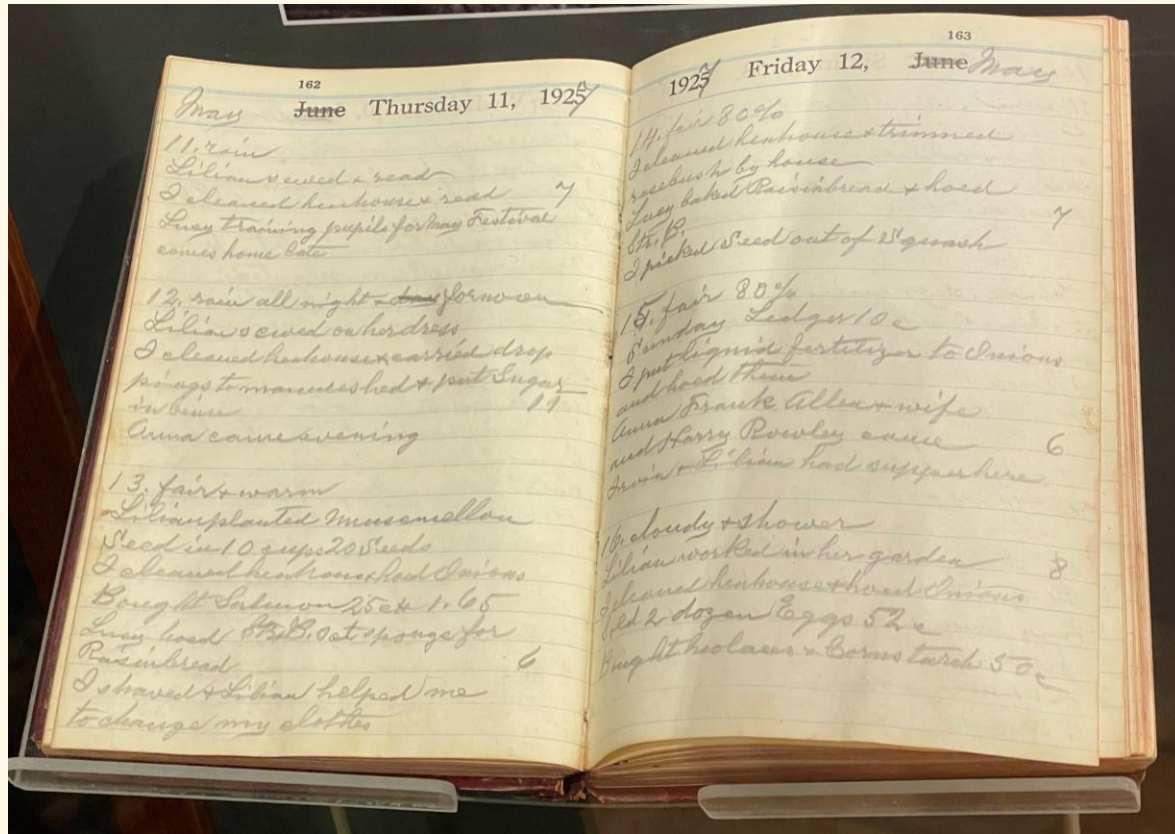 162
May June Thursday 11, 1927
11. rain
Lilian sewed + read
I cleaned henhouse + read 7
Lucy training pupils for May Festival
comes home late
12. rain all night + day fornoon
Lilian sewed on her dress
I cleaned henhouse + carried drop
pings to manureshed + put Sugar
in binn 11
Anna came evening
13. fair + warm
Lilian planted Muscmellon
Seed in 10 cups 20 Seeds
I cleaned henhouse + hoed Onions
Bought Salmon 25c + 1.65
Lucy hoed Str.B. set sponge for
Raisinbread 6
I shaved + Lilian helped me
to change my clothes
163
1927 Friday 12, June May
14. fair 80%
I cleaned henhouse + trimmed
rosebush by house
Lucy baked Raisinbread + hoed
Str. B. 7
I picked Seed out of Squash
15. fair 80%
Sunday Ledger 10c
I put liquid fertetizer to Onions
and hoed them
Anna Frank Allen + wife
and Harry Rowley came 6
Irvin + Lilian had supper here
16. cloudy + shower
Lilian worked in her garden 8
I cleaned henhouse + hoed Onions
Sold 2 dozen Eggs 52c
Bought + Cornstarch 50c